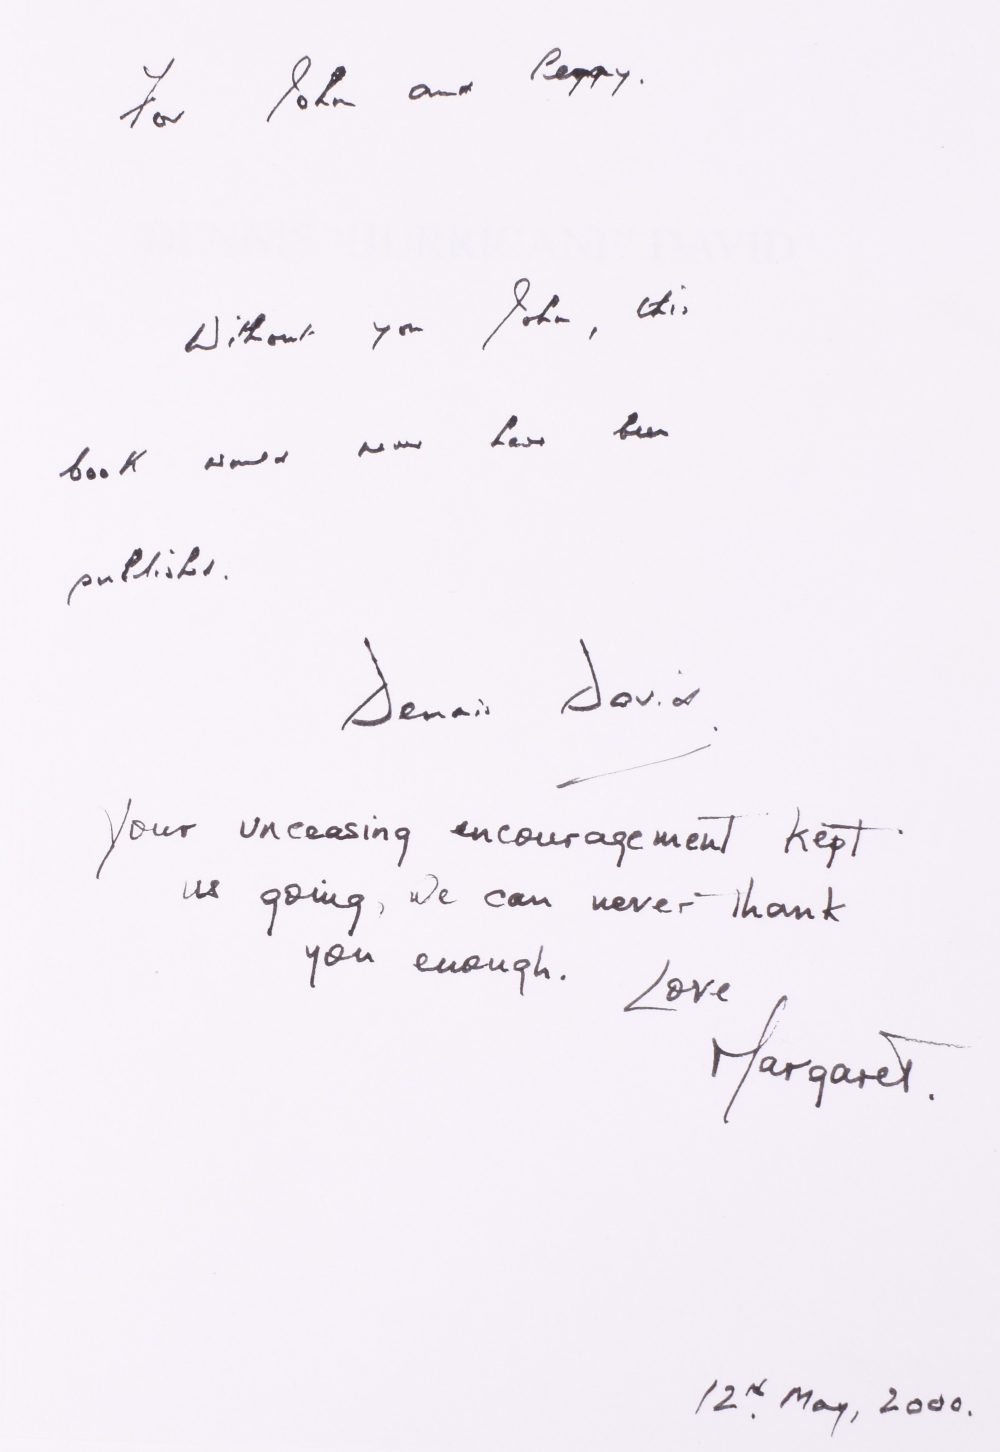 For John and Peggy.
DENNIS 'HURRICANE' DAVID
Without you John, this
book would never have been
published.
Dennis David.
Your unceasing encouragement kept
us going, We can never thank
you enough. Love
Margaret.
12th May, 2000.